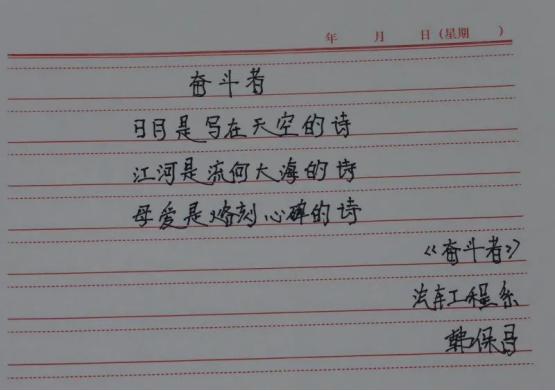 年 月 日(星期 )
奋斗者
日月是写在天空的诗
江河是流向大海的诗
母爱是熔刻心碑的诗
《奋斗者》
汽车工程系
韩保昌